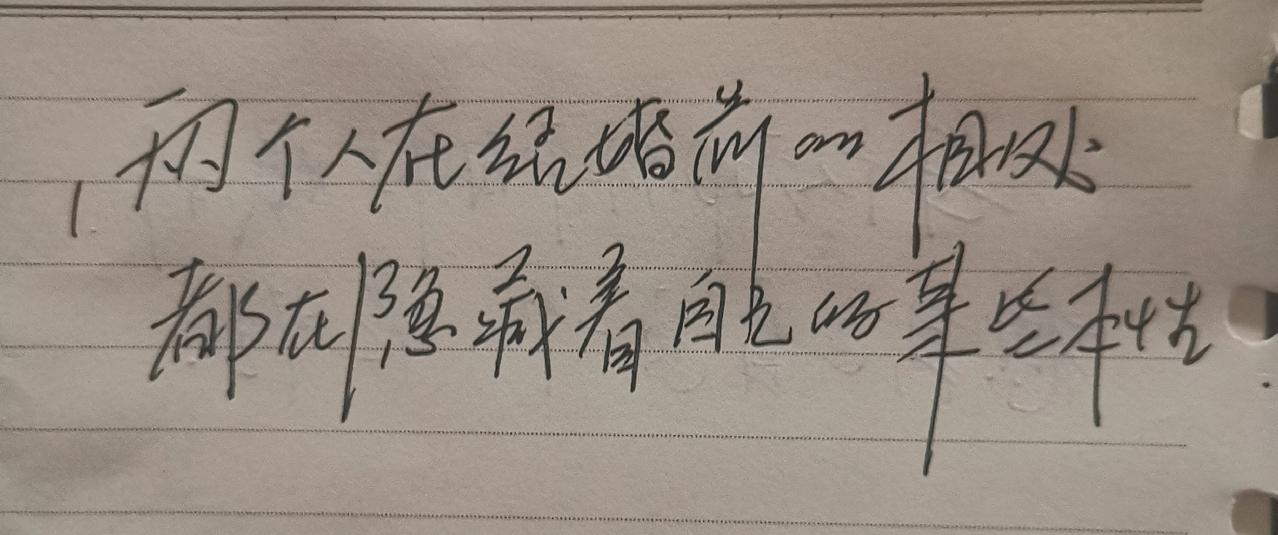 两个人在结婚前的相处
都在隐藏着自己的某些本性